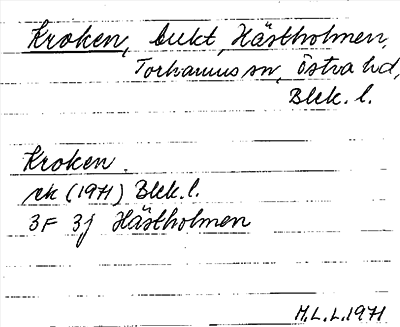 Kroken, bukt, Hästholmen,
Torhamns sn, Östra hd,
Blek. l.
Kroken.
rek (1971) Blek. l.
3F 3j Hästholmen
M.L.L. 1971